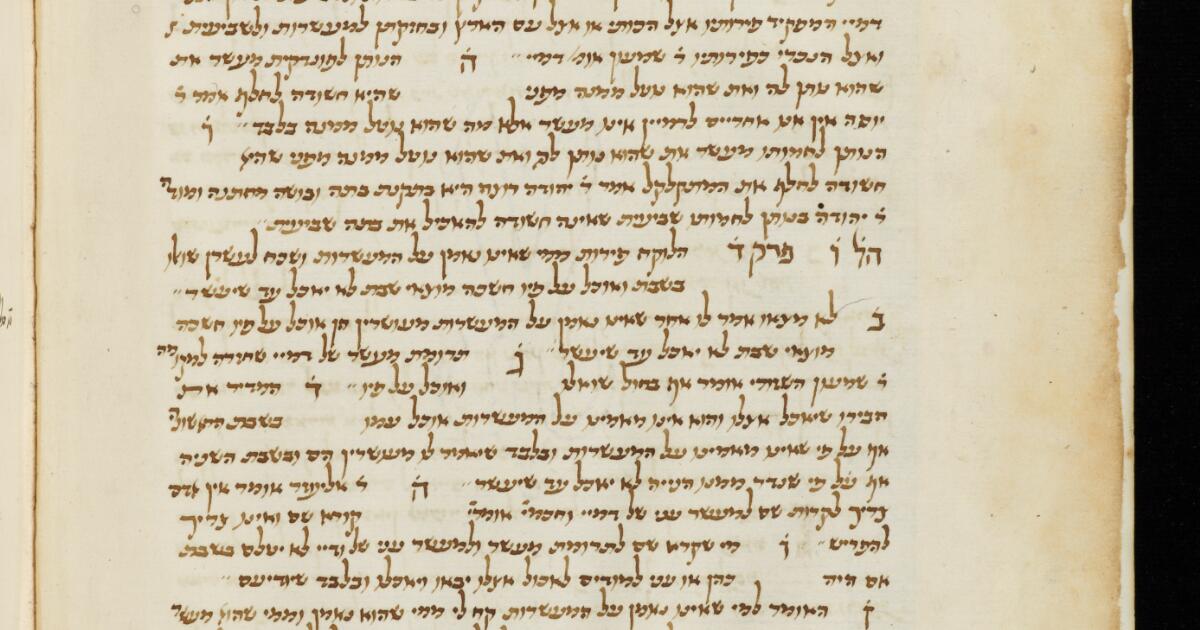 דמיי המפקיד פירותיו אצל הכותי או אצל עם הארץ ובחזקתן למעשרות ולשביעית
ואצל הנכרי כפירותיו ר שמעון אומ׳ דמיי ה הנותן לפונדקית מעשר את
שהוא נותן לה ואת שהוא נוטל ממנה מפני שהיא חשודה לחלף אמר ר
יוסה אין אנו אחריים לרמיין אינו מעשר אלא מה שהוא נוטל ממנה בלבד ו
הנותן לחמותו מעשר את שהוא נותן לה ואת שהוא נוטל ממנה מפני שהיא
חשודה לחלף את המתקלקל אמר ר יהודה רוצה היא בתקנת בתה ובושה מחתנה ומוד׳
ר יהודה בנותן לחמותו שביעית שאינה חשודה להאכיל את בתה שביעית
הל ו פרק ד הלוקח פירות ממי שאינו נאמן על המעשרות ושכח לעשרן שואלו
בשבת ואוכל על פיו חשכה מוצאי שבת לא יאכל עד שיעשר
ב לא מצאו אמר לו אחד שאינו נאמן על המעשרות מעושרין הן אוכל על פיו חשכה
מוצאי שבת לא יאכל עד שיעשר ג תרומת מעשר של דמיי שחזרה למקומה
ר שמעון השזורי אומר אף בחול שואלו ואוכל על פיו ד המדיר את
חבירו שיאכל אצלו והוא אינו מאמינו על המעשרות אוכל עמו בשבת הראשונ׳
אף על פי שאינו מאמינו על המעשרות ובלבד שיאמר לו מעושרין הם ובשבת השניה
אף על פי שנדר ממנו הנייה לא יאכל עד שיעשר ה ר אליעזר אומר אין אדם
צריך לקרות שם למעשר עני של דמיי וחכמ׳ אומר׳ קורא שם ואינו צריך
להפריש ו מי שקרא שם לתרומת מעשר ולמעשר עני של ודיי לא יטלם בשבת
אם היה כהן או עני למודים לאכול אצלו יבאו ויאכלו ובלבד שיודיעם
ז האומר למי שאינו נאמן על המעשרות קח לי ממי שהוא נאמן וממי שהוא מעשר